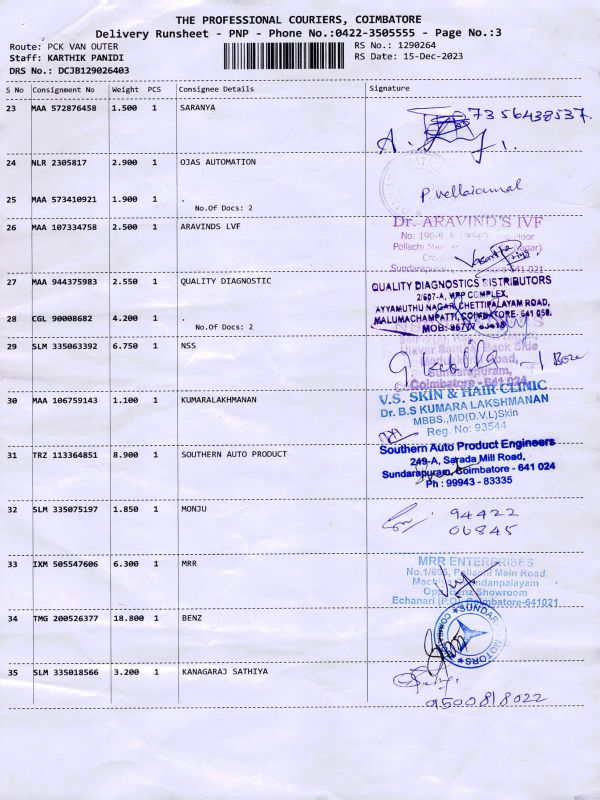 THE PROFESSIONAL COURIERS, COIMBATORE
Delivery Runsheet - PNP - Phone No.:0422-3505555 - Page No.:3
Route: PCK VAN OUTER RS No.: 1290264
Staff: KARTHIK PANIDI RS Date: 15-Dec-2023
DRS No.: DCJB129026403
S No Consignment No Weight PCS Consignee Details Signature
23 MAA 572876458 1.500 1 SARANYA 7356438537.
24 NLR 2305817 2.900 1 OJAS AUTOMATION
P vellaiammal
25 MAA 573410921 1.900 1 .
No.Of Docs: 2
26 MAA 107334758 2.500 1 ARAVINDS LVF Dr. ARAVIND'S IVF
No: 190-
Pollachi
Sundarapuram 641 021
27 MAA 944375983 2.550 1 QUALITY DIAGNOSTIC QUALITY DIAGNOSTICS DISTRIBUTORS
2/607-A, MPP COMPLEX,
AYYAMUTHU NAGAR, CHETTIPALAYAM ROAD,
28 CGL 90008682 4.200 1 . MALUMACHAMPATTI, COIMBATORE- 641 050.
No.Of Docs: 2 MOB:
29 SLM 335063392 6.750 1 NSS
Back Side
Road,
Sundarapuram,
Coimbatore - 641 024
30 MAA 106759143 1.100 1 KUMARALAKHMANAN V.S. SKIN & HAIR CLINIC
Dr. B.S KUMARA LAKSHMANAN
MBBS.,MD(D.V.L)Skin
Reg. No: 93544
31 TRZ 113364851 8.900 1 SOUTHERN AUTO PRODUCT Southern Auto Product Engineers
249-A, Sarada Mill Road,
Sundarapuram, Coimbatore - 641 024
Ph : 99943 - 83335
32 SLM 335075197 1.850 1 MONJU 94422
06845
33 IXM 505547606 6.300 1 MRR MRR ENTERPRISES
No.1/695, Pollachi Main Road
Opp. Benz Showroom
Echanari (P.O), Coimbatore-641021
34 TMG 200526377 18.800 1 BENZ SUNDARAM MOTORS
35 SLM 335018566 3.200 1 KANAGARAJ SATHIYA
9500818022